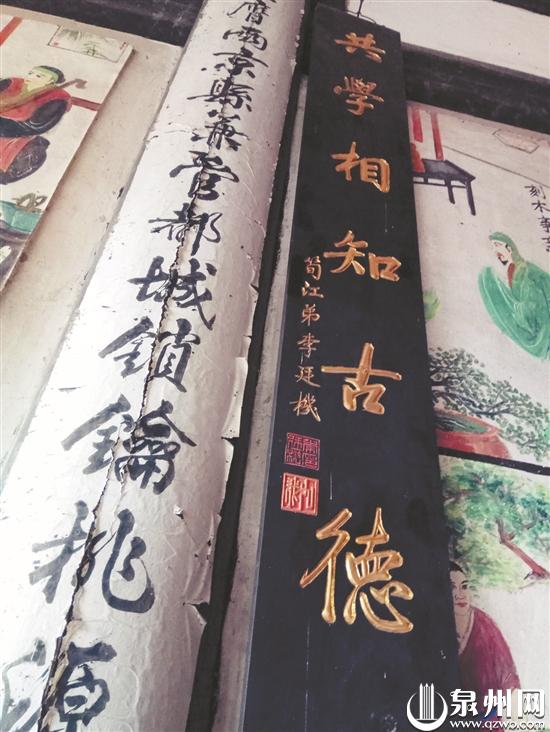 刻木事
共學相知古德
筍江弟李廷機
膺南京縣兼管都城鎖鑰桃源
泉州网
www.qzwb.com